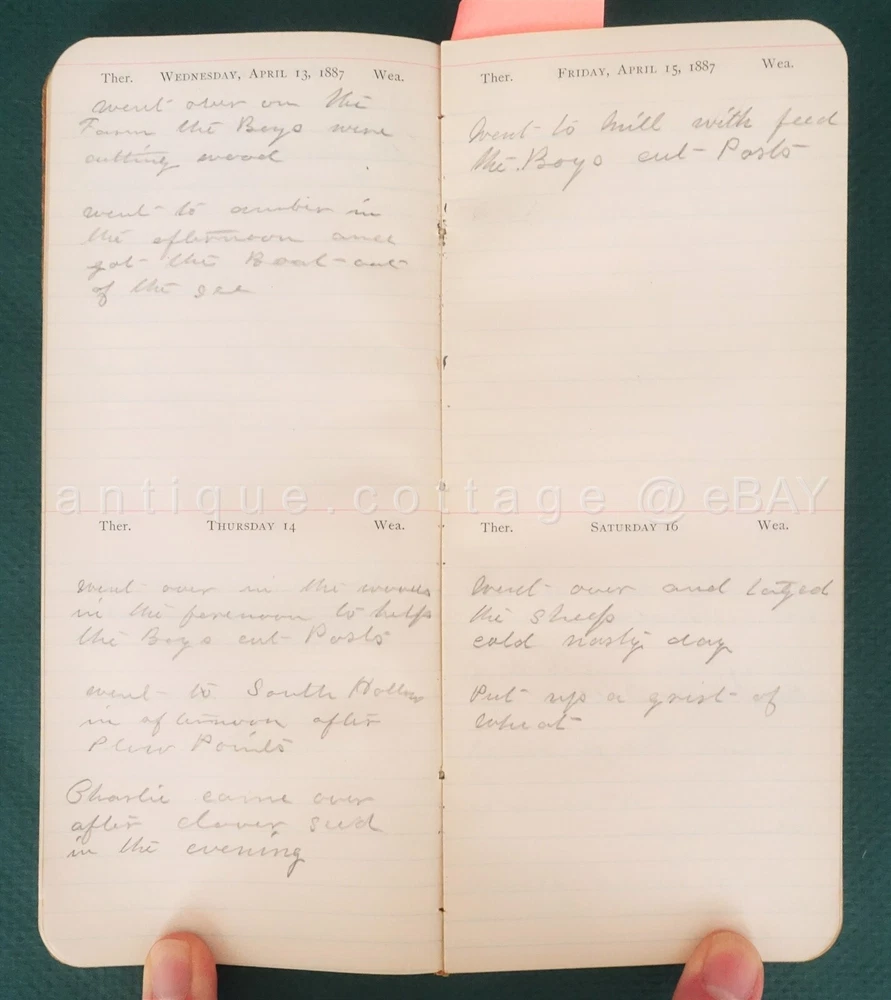 Ther. WEDNESDAY, APRIL 13, 1887 Wea.
went over on the
Farm the Boys were
cutting wood
went to amber in
the afternoon and
got the Boat out
of the
Ther. THURSDAY 14 Wea.
went over in the woods
in the forenoon to help
the Boys cut Posts
went to South Hollow
in afternoon after
Plow Points
Charlie came over
after clover seed
in the evening
Ther. FRIDAY, APRIL 15, 1887 Wea.
Went to Mill with feed
the Boys cut Posts
Ther. SATURDAY 16 Wea.
Went over and tagged
the sheep
cold nasty day
Put up a grist of
wheat
antique.cottage @ eBAY